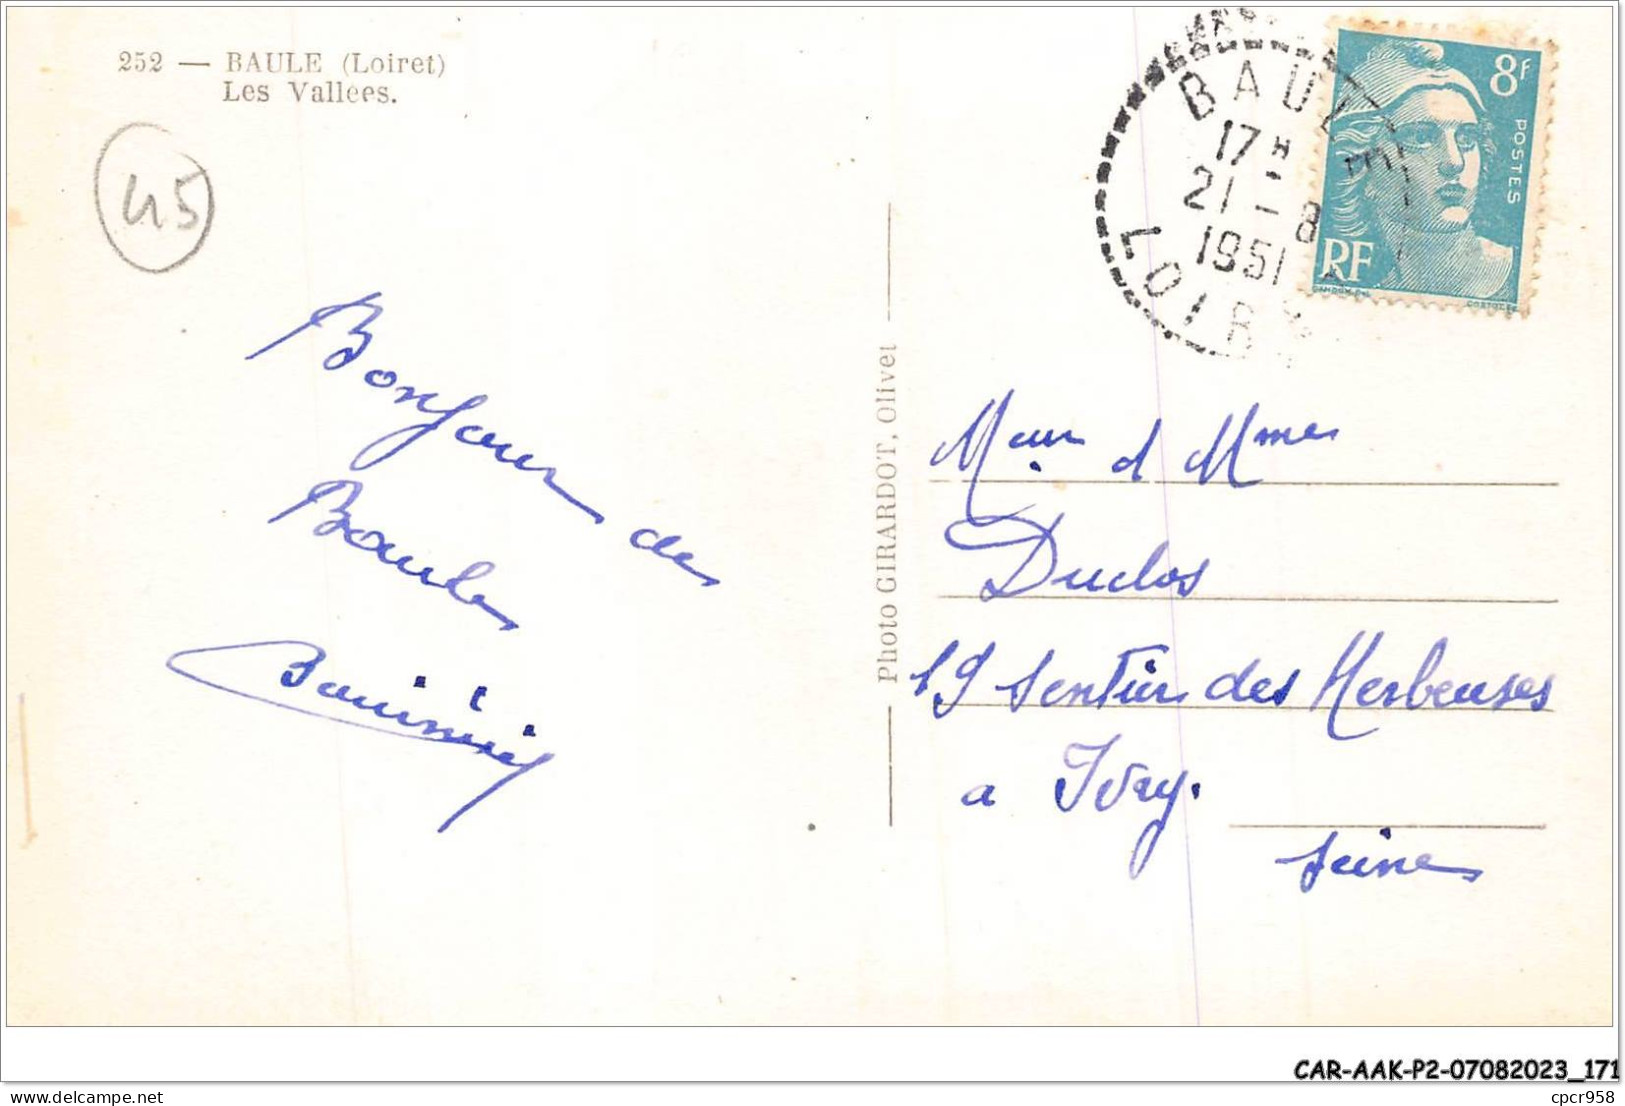 252 — BAULE (Loiret)
Les Vallées.
45
Bonjour de
Baule
Photo GIRARDOT, Olivet
BAULE
17 H
21 - 8
1951
LOIRET
8F
POSTES
RF
GANDON
d Mmes
Duclos
19 Sentier des Herbeuses
a Ivry.
Seine
CAR-AAK-P2-07082023_171
delcampe.net
cpcr958